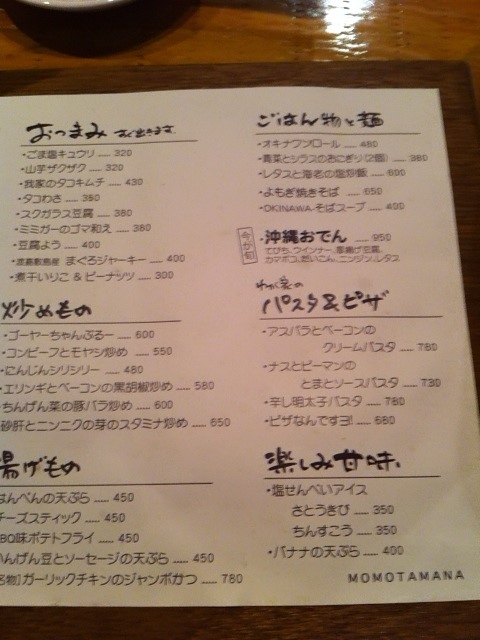 おつまみ すぐ出きます
・ごま塩キュウリ ..... 320
・山芋ザクザク ..... 320
・我家のタコキムチ ..... 430
・タコわさ ..... 350
・スクガラス豆腐 ..... 380
・ミミガーのゴマ和え ..... 380
・豆腐よう ..... 400
・渡嘉敷島産 まぐろジャーキー ..... 400
・煮干いりこ & ピーナッツ ..... 300
炒めもの
・ゴーヤーちゃんぷるー ..... 600
・コンビーフとモヤシ炒め ..... 550
・にんじんシリシリー ..... 480
・エリンギとベーコンの黒胡椒炒め ..... 580
ちんげん菜の豚バラ炒め ..... 600
砂肝とニンニクの芽のスタミナ炒め ..... 650
揚げもの
はんぺんの天ぷら ..... 450
チーズスティック ..... 450
BBQ味ポテトフライ ..... 450
いんげん豆とソーセージの天ぷら ..... 450
名物]ガーリックチキンのジャンボかつ ..... 780
ごはん物と麺
・オキナワンロール ..... 480
・青菜とシラスのおにぎり(2個) ..... 380
・レタスと海老の塩炒飯 ..... 600
・よもぎ焼きそば ..... 650
・OKINAWAそばスープ ..... 400
今が旬
・沖縄おでん ..... 950
てびち、ウインナー、厚揚げ豆腐、
カマボコ、だいこん、ニンジン、レタス
わが家の
パスタ&ピザ
・アスパラとベーコンの
クリームパスタ ..... 780
・ナスとピーマンの
とまとソースパスタ ..... 730
・辛し明太子パスタ ..... 780
・ピザなんですヨ! ..... 680
楽しみ甘味
・塩せんべいアイス
さとうきび ..... 350
ちんすこう ..... 350
・バナナの天ぷら ..... 400
MOMOTAMANA